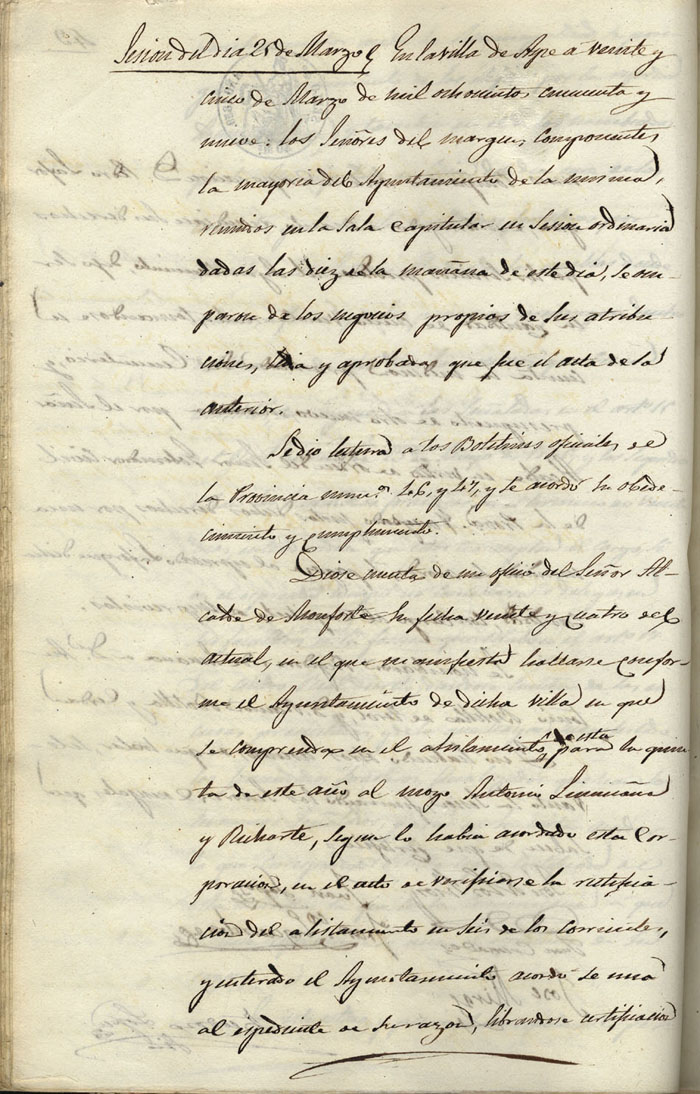 Sesion del dia 25 de Marzo En la villa de Aspe á veinte y
cinco de Marzo de mil ochocientos cincuenta y
nueve: los Señores del margen, componentes
la mayoria del Ayuntamiento de la misma,
reunidos en la Sala Capitular en Sesion ordinaria
dadas las diez de la mañana de este dia, se ocu-
paron de los negocios propios de sus atribu
ciones, leida y aprobada que fue el acta de la
anterior.
Se dio lectura a los Boletines oficiales de
la Provincia num.º 46, y 47, y se acordó su obede-
cimiento y cumplimiento.
Diose cuenta de un oficio del Señor Al-
calde de Monforte su fecha veinte y cuatro del
actual, en el que manifiesta hallarse confor-
me el Ayuntamiento de dicha villa en que
se comprenda en el alistamiento de esta para la quin-
ta de este año al mozo Antonio Limiñana
y Richarte, segun lo habia acordado esta Cor-
poracion, en el acto de verificarse la rectifica-
cion del alistamiento en seis de los corrientes,
y enterado el Ayuntamiento acordó se una
al espediente de su razon, librandose certificacion